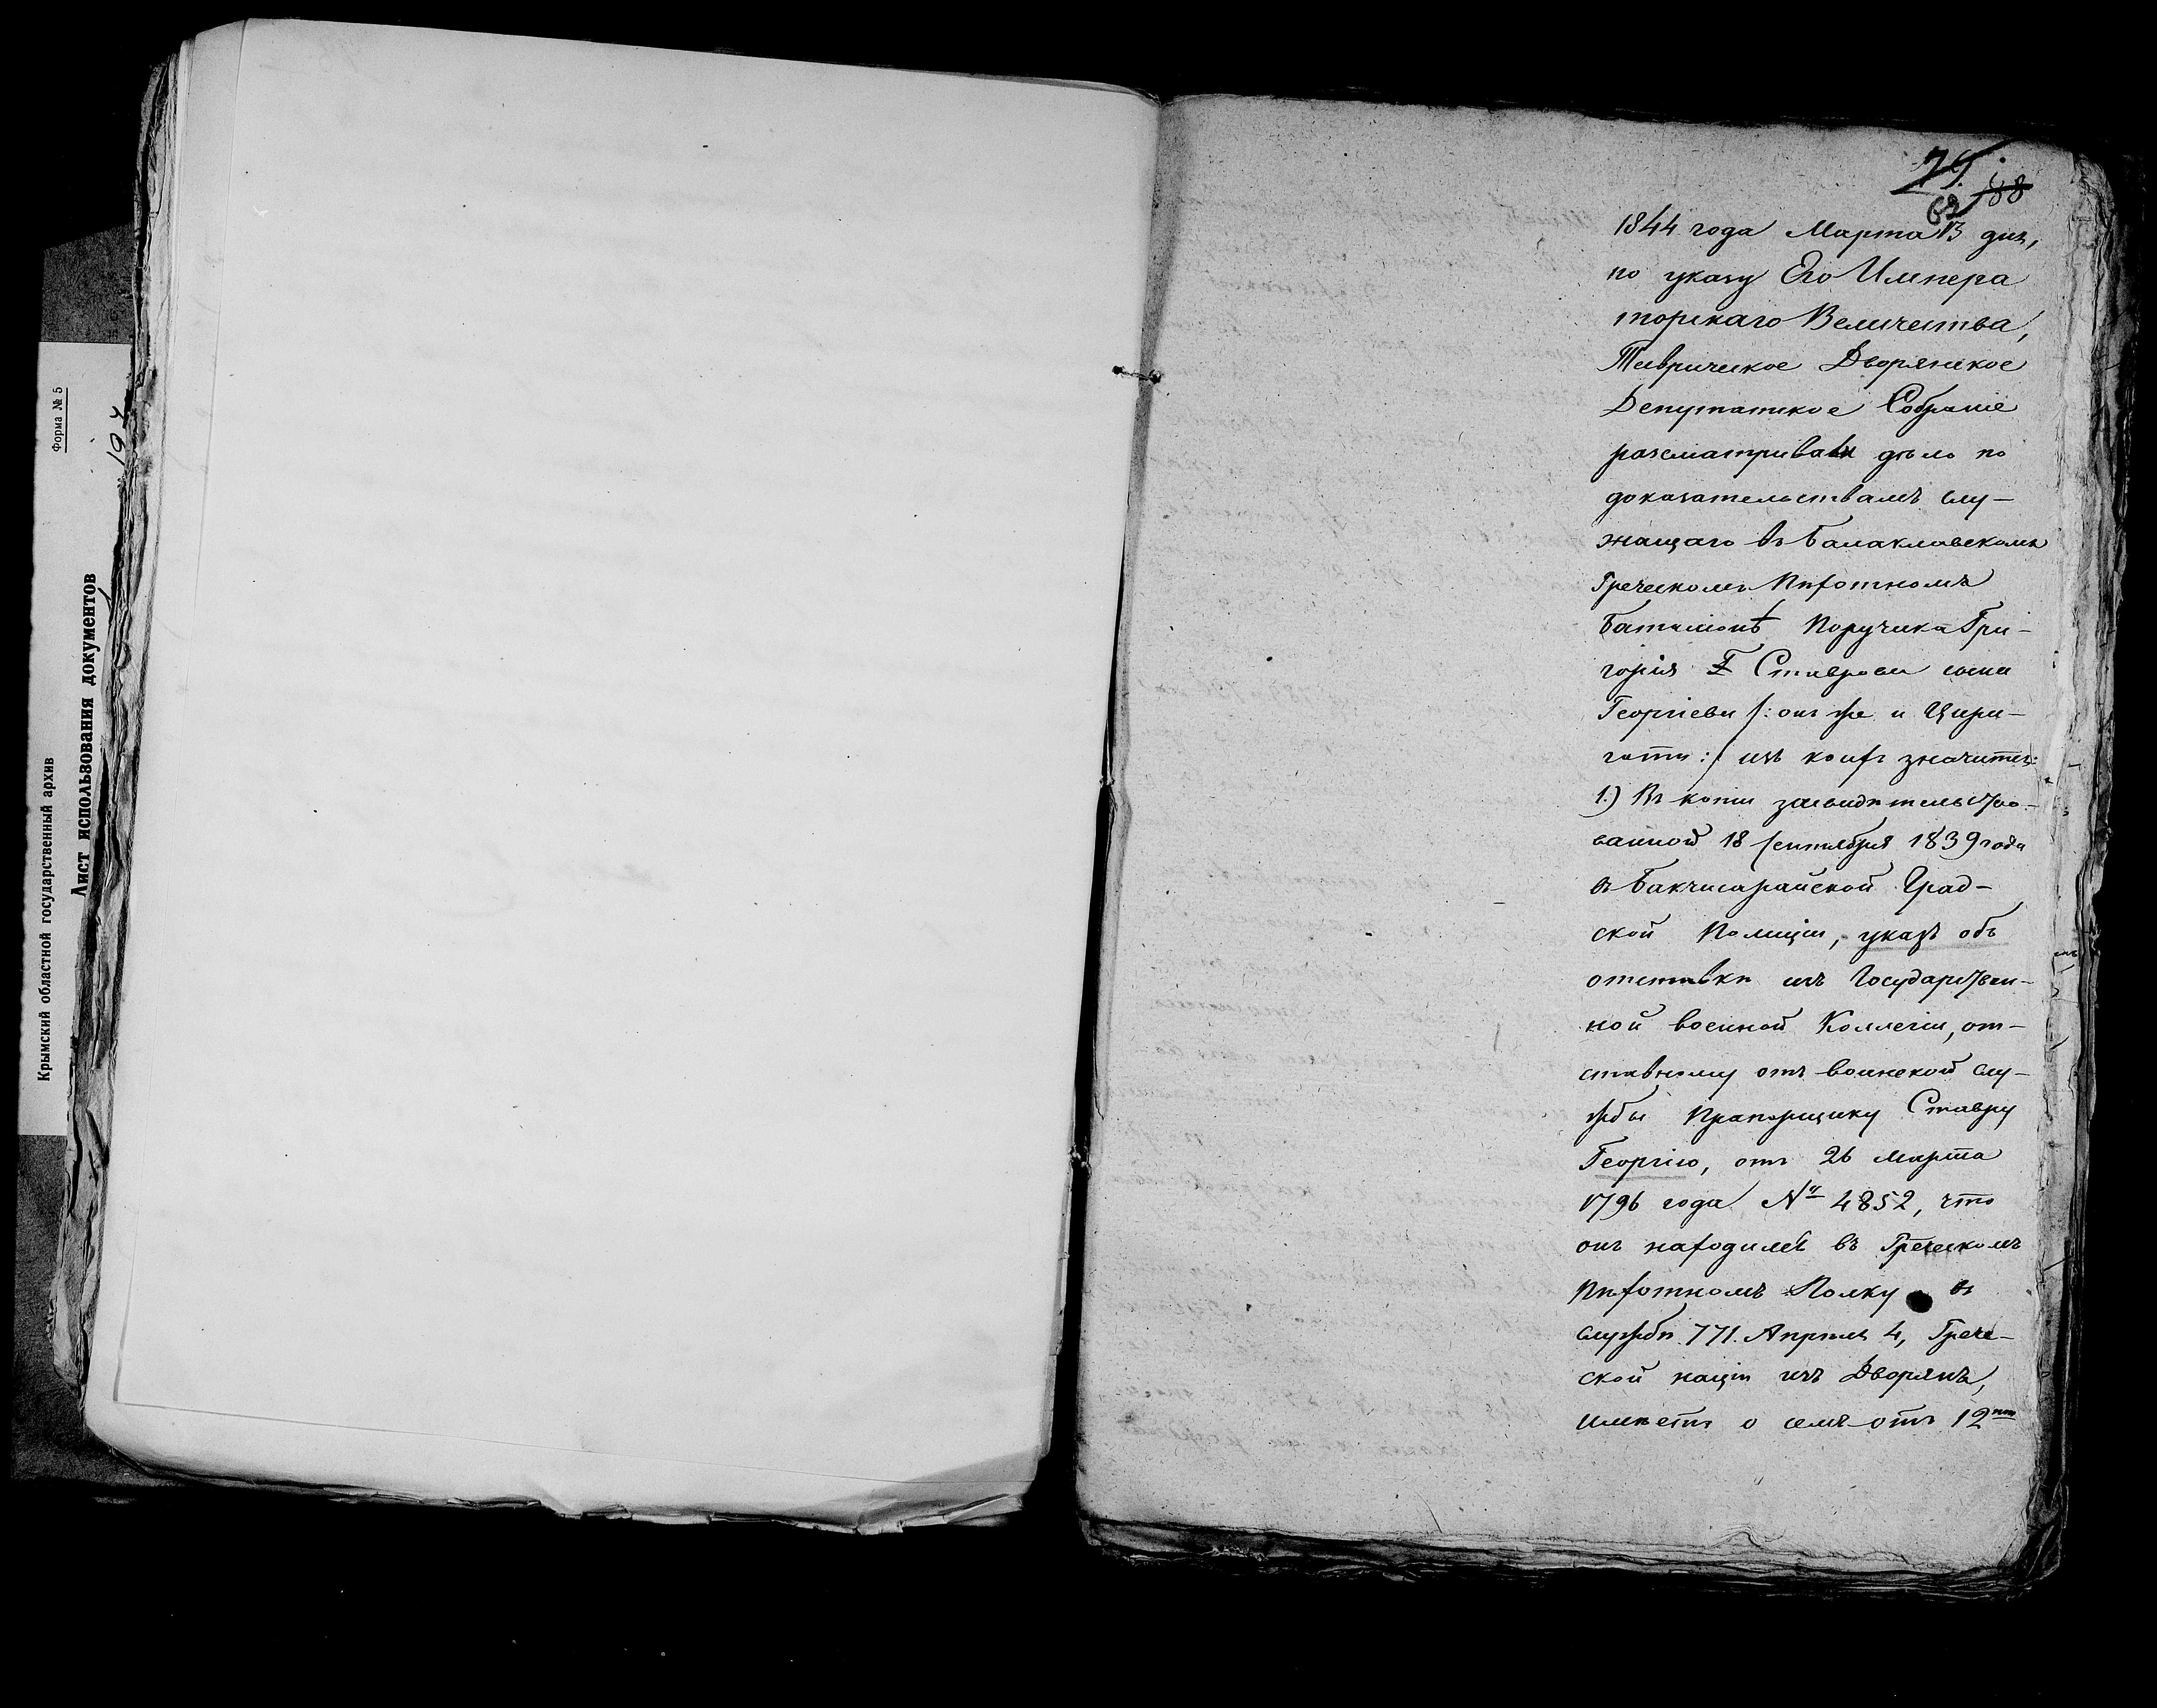 Крымский областной государственный архив
Форма № 5
Лист использования документов
197
75.
188
62
1844 года Марта 13 дня,
по указу Его Импера
торскаго Величества,
Таврическое Дворянское
Депутатское Собраніе
разсматривали дѣло по
доказательствамъ слу-
жащаго въ Балаклавскомъ
Греческомъ Пѣхотномъ
Баталіонѣ Поручика Гри-
горія Ставрова сына
Георгіева /: онъ же и Цири-
готи :/ изъ коихъ значится:
1.) Въ копіи засвидѣтельство-
ванной 18 Сентября 1839 года
въ Бакчисарайской Град-
ской Полиціи, указъ объ
отставкѣ изъ Государствен-
ной военной Коллегіи, от-
ставному отъ воинской слу-
жбы Прапорщику Ставру
Георгію, отъ 26 Марта
1796 года № 4852, что
онъ находился въ Греческомъ
Пѣхотномъ Полку въ
службѣ 771. Апрѣля 4, Грече-
ской націи изъ Дворянъ,
имѣетъ о семъ отъ 12